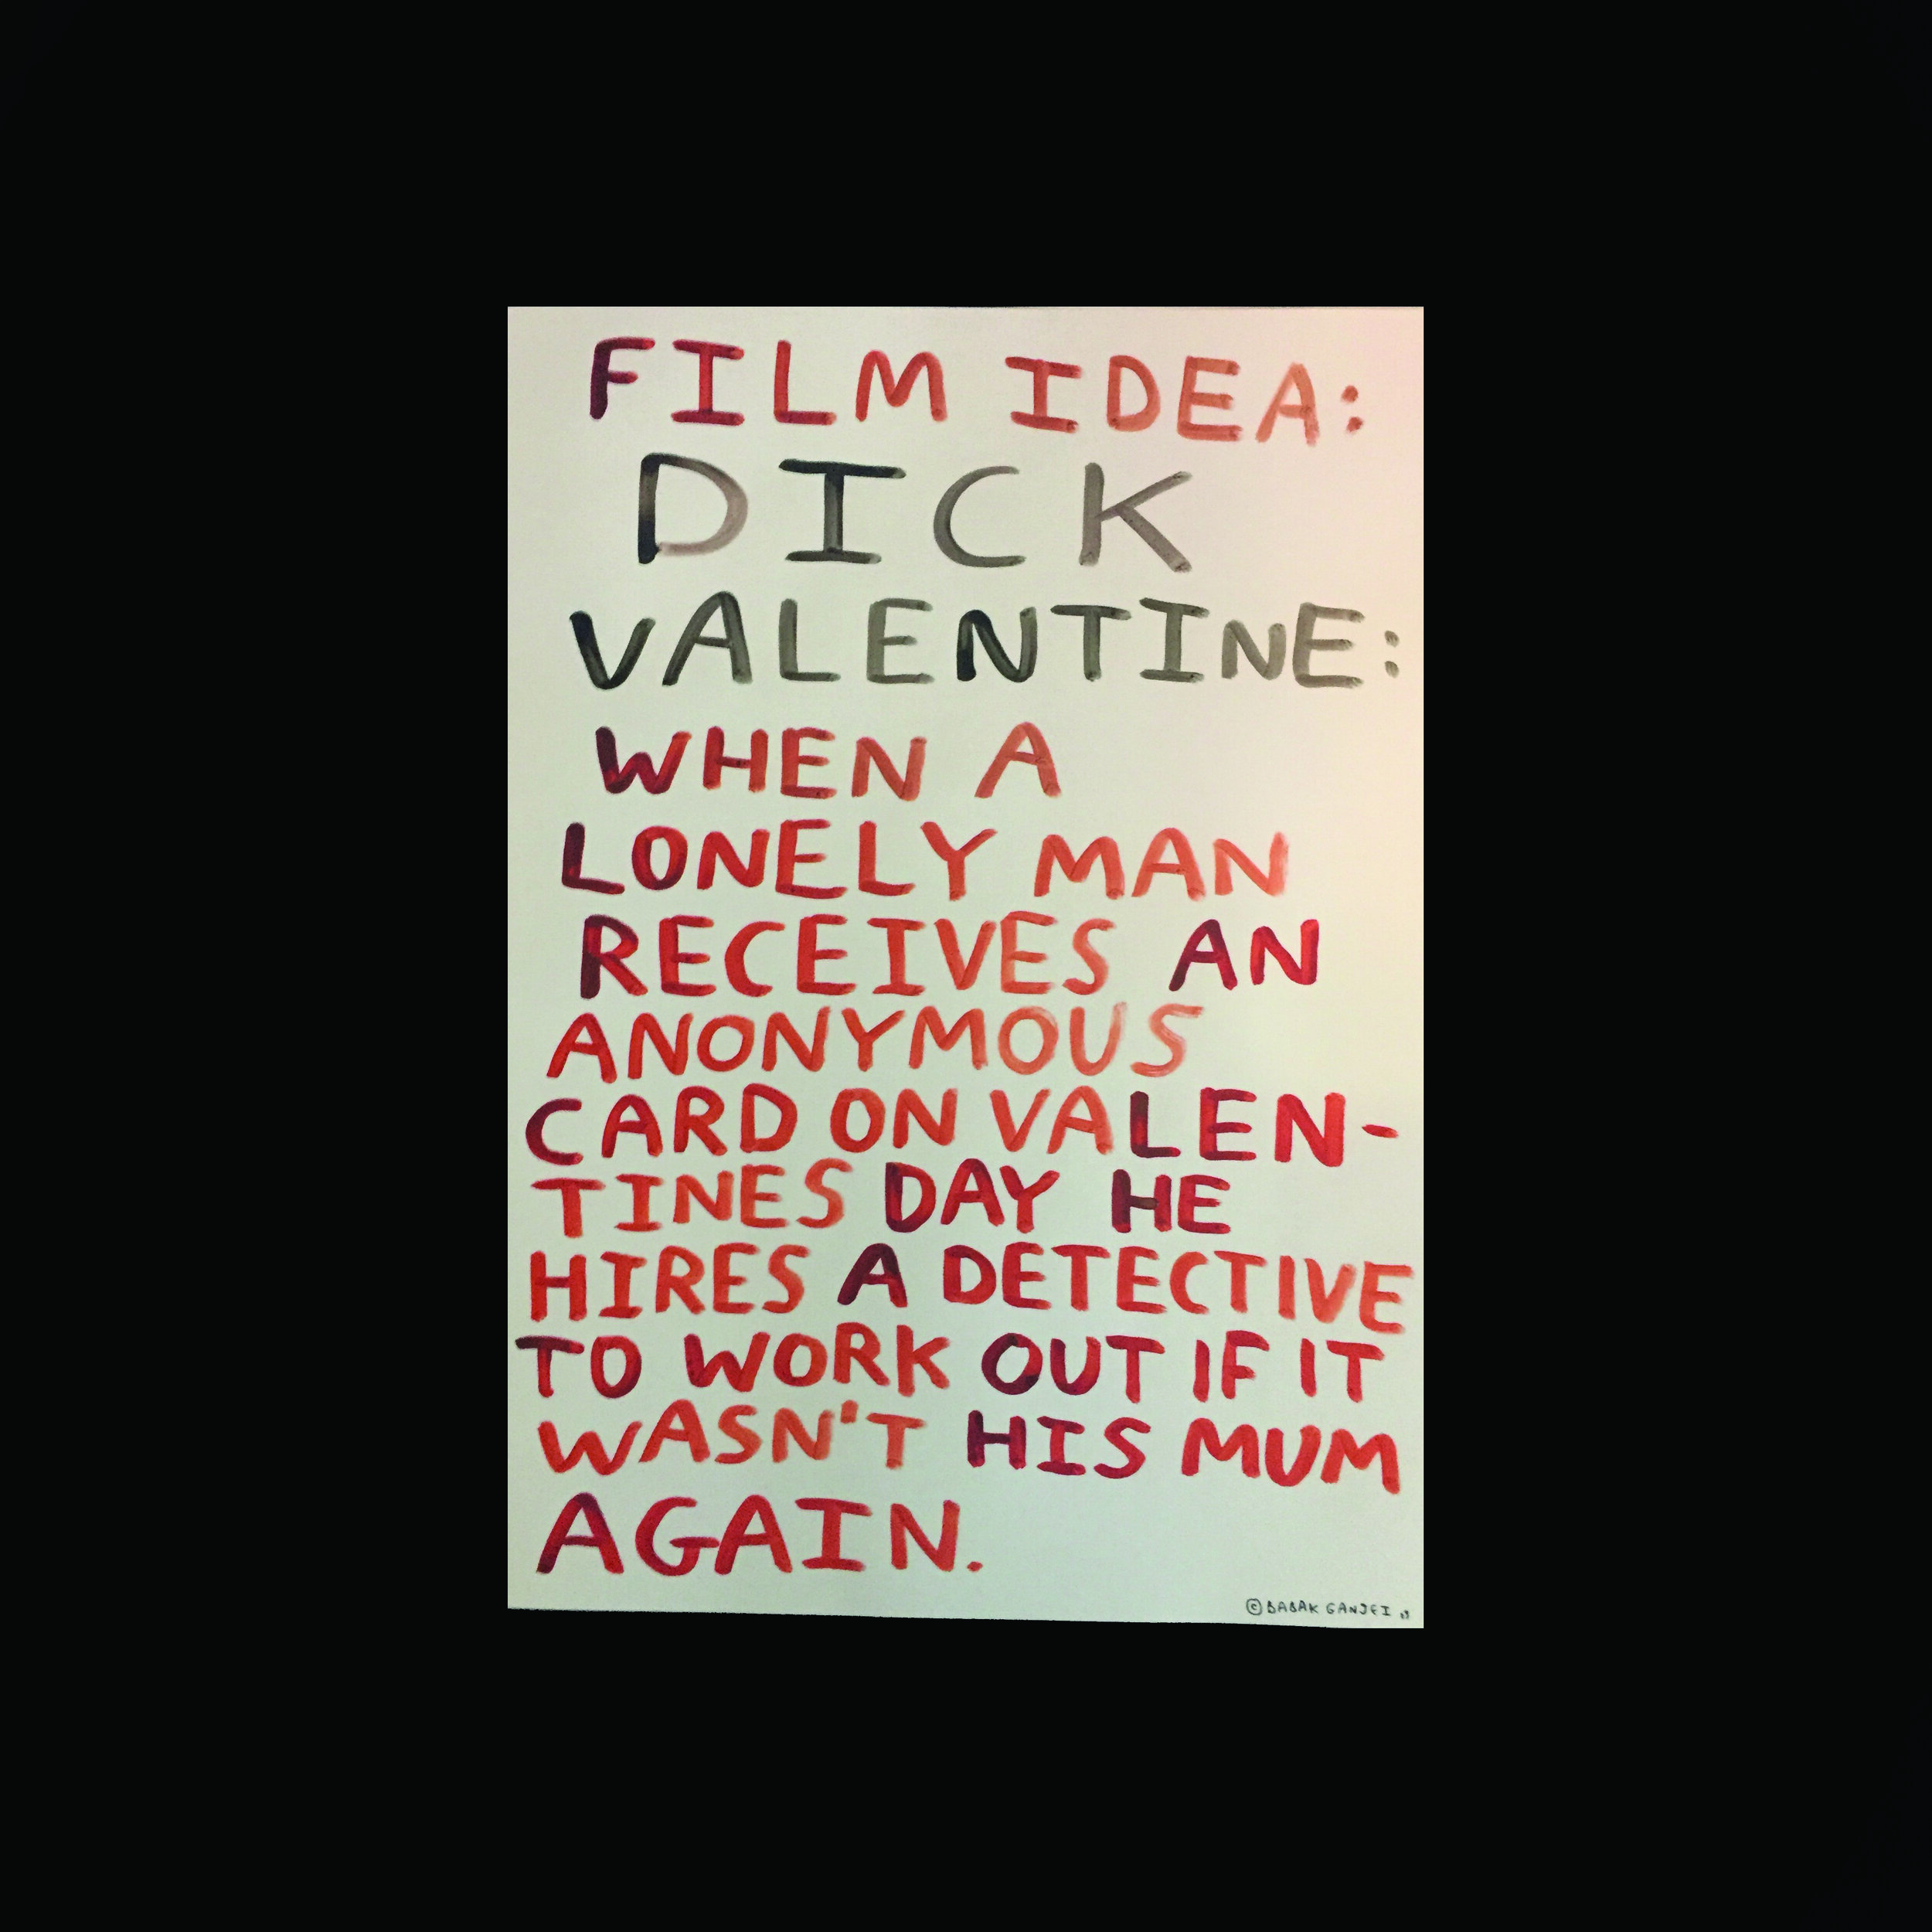 FILM IDEA:
DICK
VALENTINE:
WHEN A
LONELY MAN
RECEIVES AN
ANONYMOUS
CARD ON VALEN-
TINES DAY HE
HIRES A DETECTIVE
TO WORK OUT IF IT
WASN'T HIS MUM
AGAIN.
© BABAK GANJEI